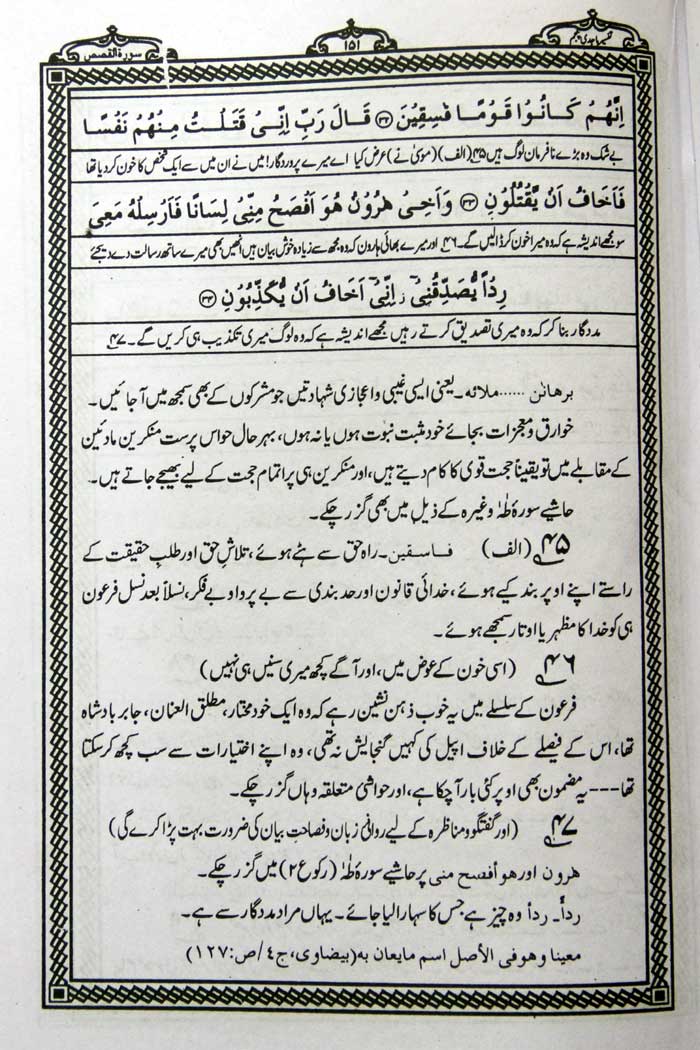 تفسیر ماجدی پنجم
۱۵۱
سورۃ القصص
اِنَّهُمْ كَانُوْا قَوْمًا فٰسِقِيْنَ ۝۳۲ قَالَ رَبِّ اِنِّىْ قَتَلْتُ مِنْهُمْ نَفْسًا
بے شک وہ بڑے نافرمان لوگ ہیں ۴۵(الف) (موسیٰ نے) عرض کیا اے میرے پروردگار! میں نے ان میں سے ایک شخص کا خون کر دیا تھا
فَاَخَافُ اَنْ يَّقْتُلُوْنِ ۝۳۳ وَاَخِىْ هٰرُوْنُ هُوَ اَفْصَحُ مِنِّىْ لِسَانًا فَاَرْسِلْهُ مَعِىَ
سو مجھے اندیشہ ہے کہ وہ میرا خون کر ڈالیں گے۔ ۴۶ اور میرے بھائی ہارون کہ وہ مجھ سے زیادہ خوش بیان ہیں انھیں بھی میرے ساتھ رسالت دے دیجئے
رِدْاً يُّصَدِّقُنِىْۤ ز اِنِّىْۤ اَخَافُ اَنْ يُّكَذِّبُوْنِ ۝۳۴
مددگار بنا کر کہ وہ میری تصدیق کرتے رہیں مجھے اندیشہ ہے کہ وہ لوگ میری تکذیب ہی کریں گے۔ ۴۷
برھانٰن ...... ملائه۔ یعنی ایسی غیبی و اعجازی شہادتیں جو مشرکوں کے بھی سمجھ میں آجائیں۔
خوارق و معجزات بجائے خود مثبت نبوت ہوں یا نہ ہوں، بہرحال حواس پرست منکرین مادئین
کے مقابلے میں تو یقیناً حجت قوی کا کام دیتے ہیں، اور منکرین ہی پر اتمام حجت کے لیے بھیجے جاتے ہیں۔
حاشیے سورۂ طٰہٰ وغیرہ کے ذیل میں بھی گزر چکے۔
۴۵ (الف) فاسقین۔ راہ حق سے ہٹے ہوئے، تلاشِ حق اور طلبِ حقیقت کے
راستے اپنے اوپر بند کیے ہوئے، خدائی قانون اور حد بندی سے بے پروا و بے فکر، نسلاً بعد نسل فرعون
ہی کو خدا کا مظہر یا اوتار سمجھے ہوئے۔
۴۶ (اسی خون کے عوض میں، اور آگے کچھ میری سنیں ہی نہیں)
فرعون کے سلسلے میں یہ خوب ذہن نشین رہے کہ وہ ایک خودمختار، مطلق العنان، جابر بادشاہ
تھا، اس کے فیصلے کے خلاف اپیل کی کہیں گنجایش نہ تھی، وہ اپنے اختیارات سے سب کچھ کر سکتا
تھا --- یہ مضمون بھی اوپر کئی بار آچکا ہے، اور حواشی متعلقہ وہاں گزر چکے۔
۴۷ (اور گفتگو و مناظرہ کے لیے روانی زبان و فصاحتِ بیان کی ضرورت بہت پڑا کرے گی)
ھرون اور ھو أفصح منی پر حاشیے سورۂ طٰہٰ (رکوع ۲) میں گزر چکے۔
ردأ۔ ردأ وہ چیز ہے جس کا سہارا لیا جائے۔ یہاں مراد مددگار سے ہے۔
معینا وھو فی الأصل اسم مایعان به (بیضاوی، ج٤/ص:١٢٧)